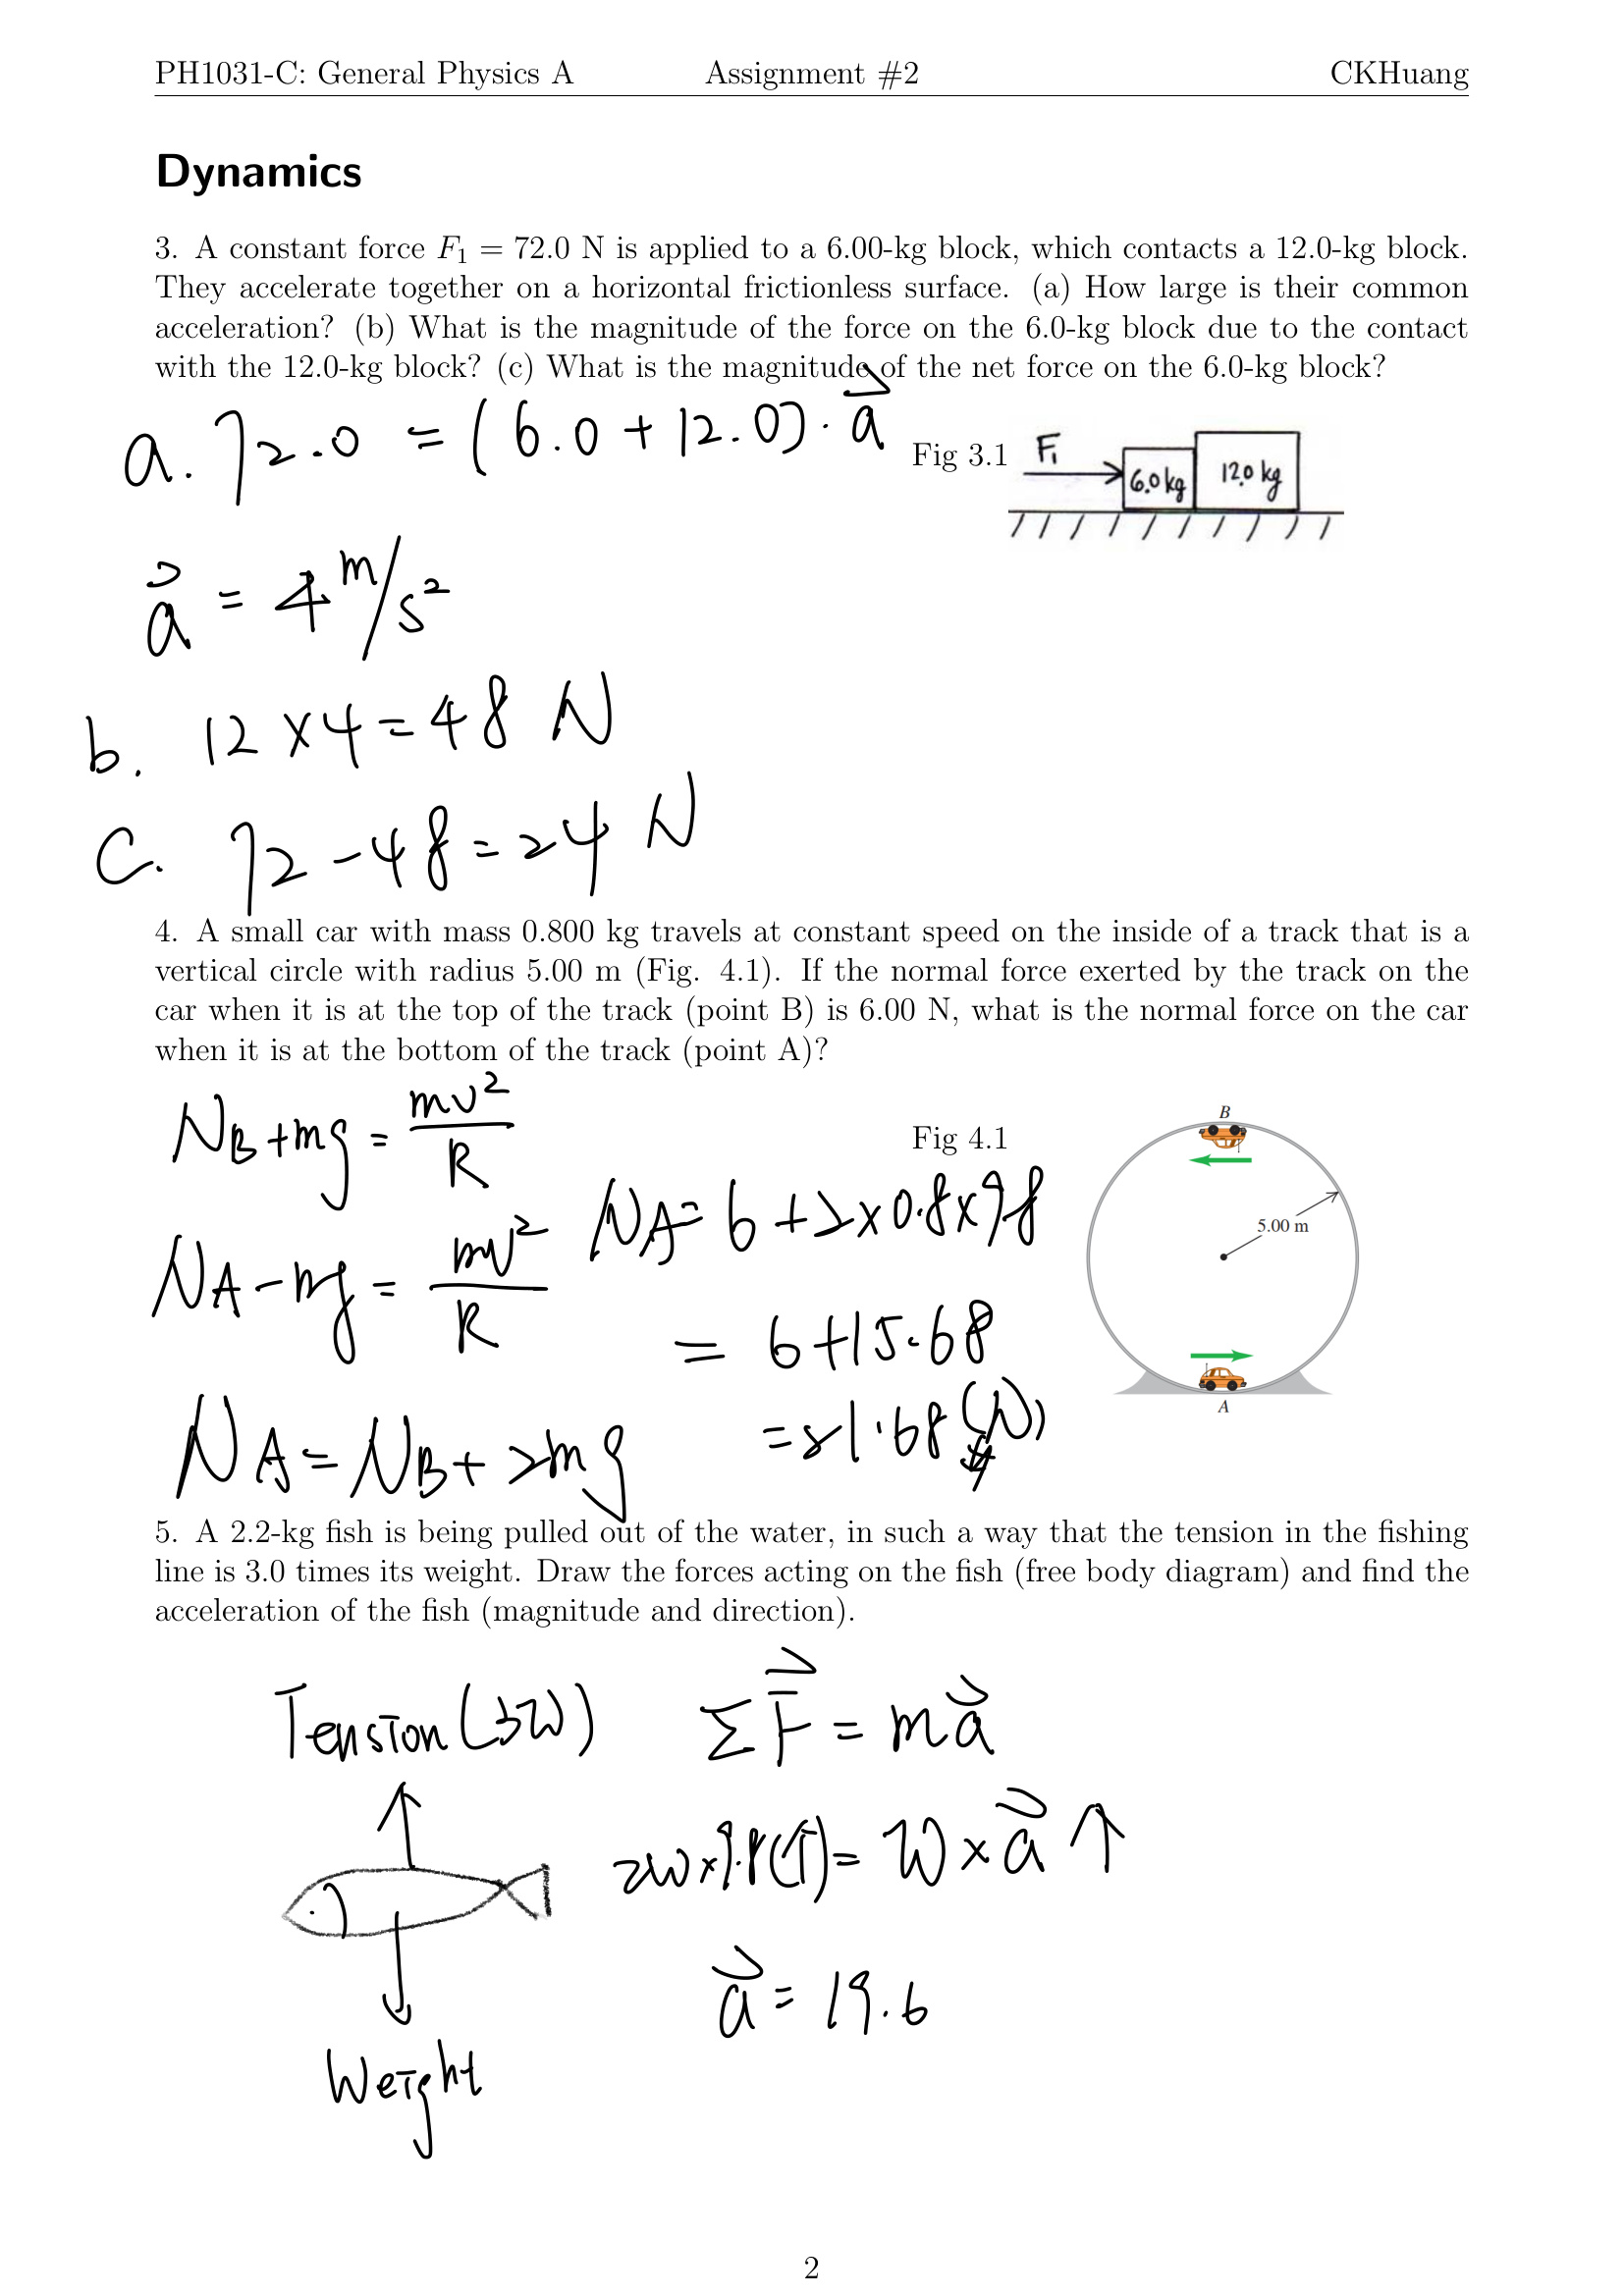 PH1031-C: General Physics A Assignment #2 CKHuang
Dynamics
3. A constant force F₁ = 72.0 N is applied to a 6.00-kg block, which contacts a 12.0-kg block.
They accelerate together on a horizontal frictionless surface. (a) How large is their common
acceleration? (b) What is the magnitude of the force on the 6.0-kg block due to the contact
with the 12.0-kg block? (c) What is the magnitude of the net force on the 6.0-kg block?
a. 72.0 = (6.0 + 12.0) · a⃗
Fig 3.1
F₁
6.0 kg
12.0 kg
a⃗ = 4 m/s²
b. 12 × 4 = 48 N
c. 72 - 48 = 24 N
4. A small car with mass 0.800 kg travels at constant speed on the inside of a track that is a
vertical circle with radius 5.00 m (Fig. 4.1). If the normal force exerted by the track on the
car when it is at the top of the track (point B) is 6.00 N, what is the normal force on the car
when it is at the bottom of the track (point A)?
N_B + mg = mv²/R
N_A - mg = mv²/R
N_A = N_B + 2mg
N_A = 6 + 2 × 0.8 × 9.8
= 6 + 15.68
= 21.68 (N)
Fig 4.1
B
5.00 m
A
5. A 2.2-kg fish is being pulled out of the water, in such a way that the tension in the fishing
line is 3.0 times its weight. Draw the forces acting on the fish (free body diagram) and find the
acceleration of the fish (magnitude and direction).
Tension (3W)
Weight
ΣF⃗ = ma⃗
2W × 9.8 (↑) = W × a⃗ ↑
a⃗ = 19.6
2